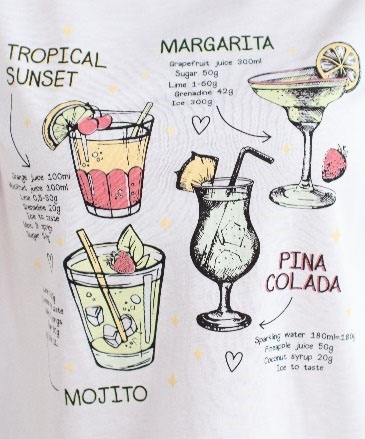 TROPICAL
SUNSET
Orange juice 100ml
juice 100ml
Lime 0,5-50g
Grenadine 20g
Ice to taste
Sugar
MARGARITA
Grapefruit juice 300ml
Sugar 50g
Lime 1-60g
Grenadine 42g
Ice 300g
PINA
COLADA
Sparkling water 180ml-180g
Pineapple juice 50g
Coconut syrup 20g
Ice to taste
MOJITO